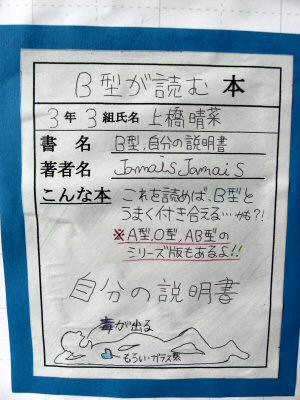 B型が読む 本
3年 3組氏名 上橋晴菜
書 名 B型,自分の説明書
著者名 Jamais Jamais
こんな本 これを読めば、B型と
うまく付き合える…かも?!
※A型,O型,AB型の
シリーズ版もあるよ!!
自分の説明書
毒が出る
もろい・ガラス製